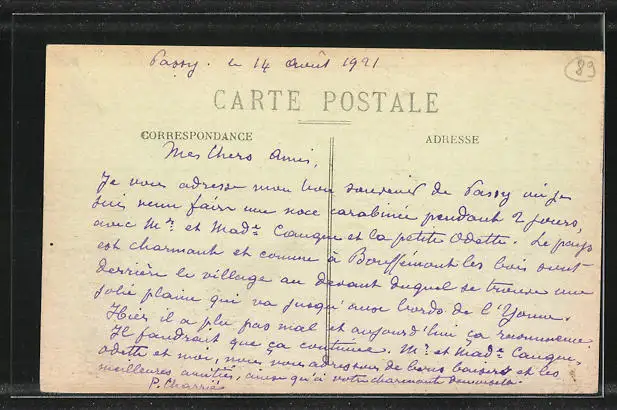 Passy. le 14 Août 1921
89
CARTE POSTALE
CORRESPONDANCE
ADRESSE
Mes Chers Amis,
Je vous adresse mon bon souvenir de Passy où je
suis venu faire une noce carabinée pendant 2 jours,
avec Mr. et Made Cauque et la petite Odette. Le pays
est charmant et comme à Bouffémont les bois sont
derrière le village au devant duquel se trouve une
jolie plaine qui va jusqu'aux bords de l'Yonne.
Hier il a plu pas mal et aujourd'hui ça recommence
Il faudrait que ça continue. Mr. et Made Cauque,
Odette et moi, nous vous adressons de bons baisers et les
meilleures amitiés, ainsi qu'à votre charmante demoiselle.
P. Charrié